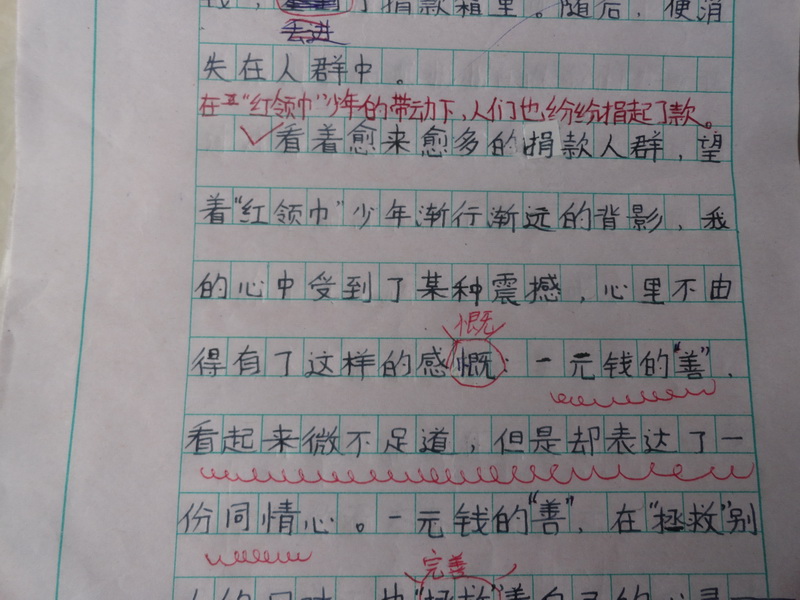 了捐款箱里。随后，便消
去进
失在人群中。
在“红领巾”少年的带动下，人们也纷纷捐起了款。
看着愈来愈多的捐款人群，望
着“红领巾”少年渐行渐远的背影，我
的心中受到了某种震撼，心里不由
慨
得有了这样的感慨：一元钱的“善”，
看起来微不足道，但是却表达了一
份同情心。一元钱的“善”，在“拯救”别
完善